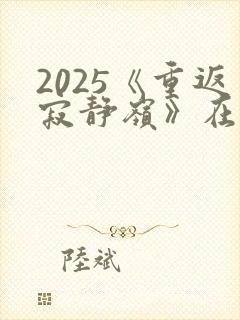 2025《重返
寂靜嶺》在
陸斌